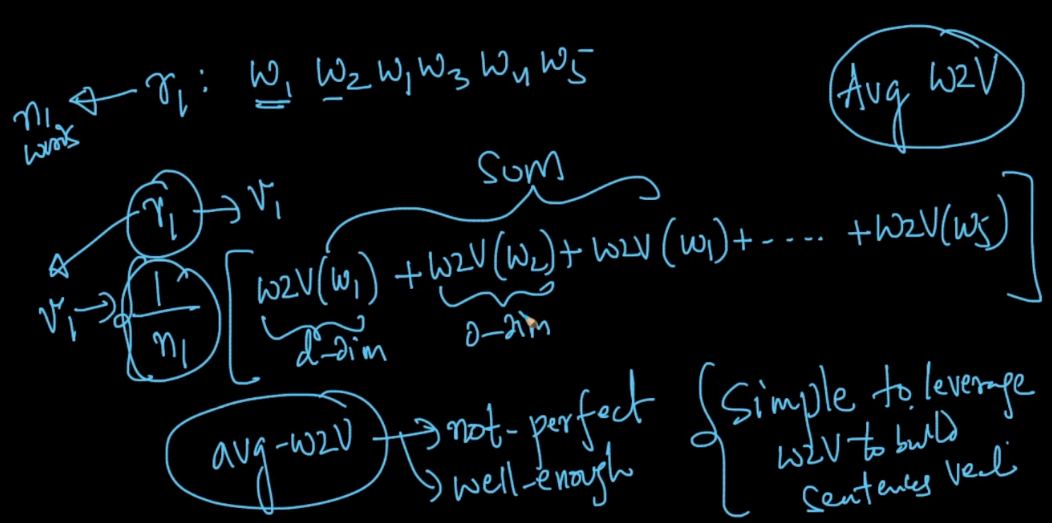 n₁ words ← r₁ : w₁ w₂ w₁ w₃ w₄ w₅
Avg W2V
sum
r₁ → v₁
v₁ → 1/n₁ [ w2v(w₁) + w2v(w₂) + w2v(w₁) + ---- + w2v(w5) ]
d-dim
d-dim
avg-w2v → not-perfect
→ well-enough
{ Simple to leverage
w2v to build
sentences